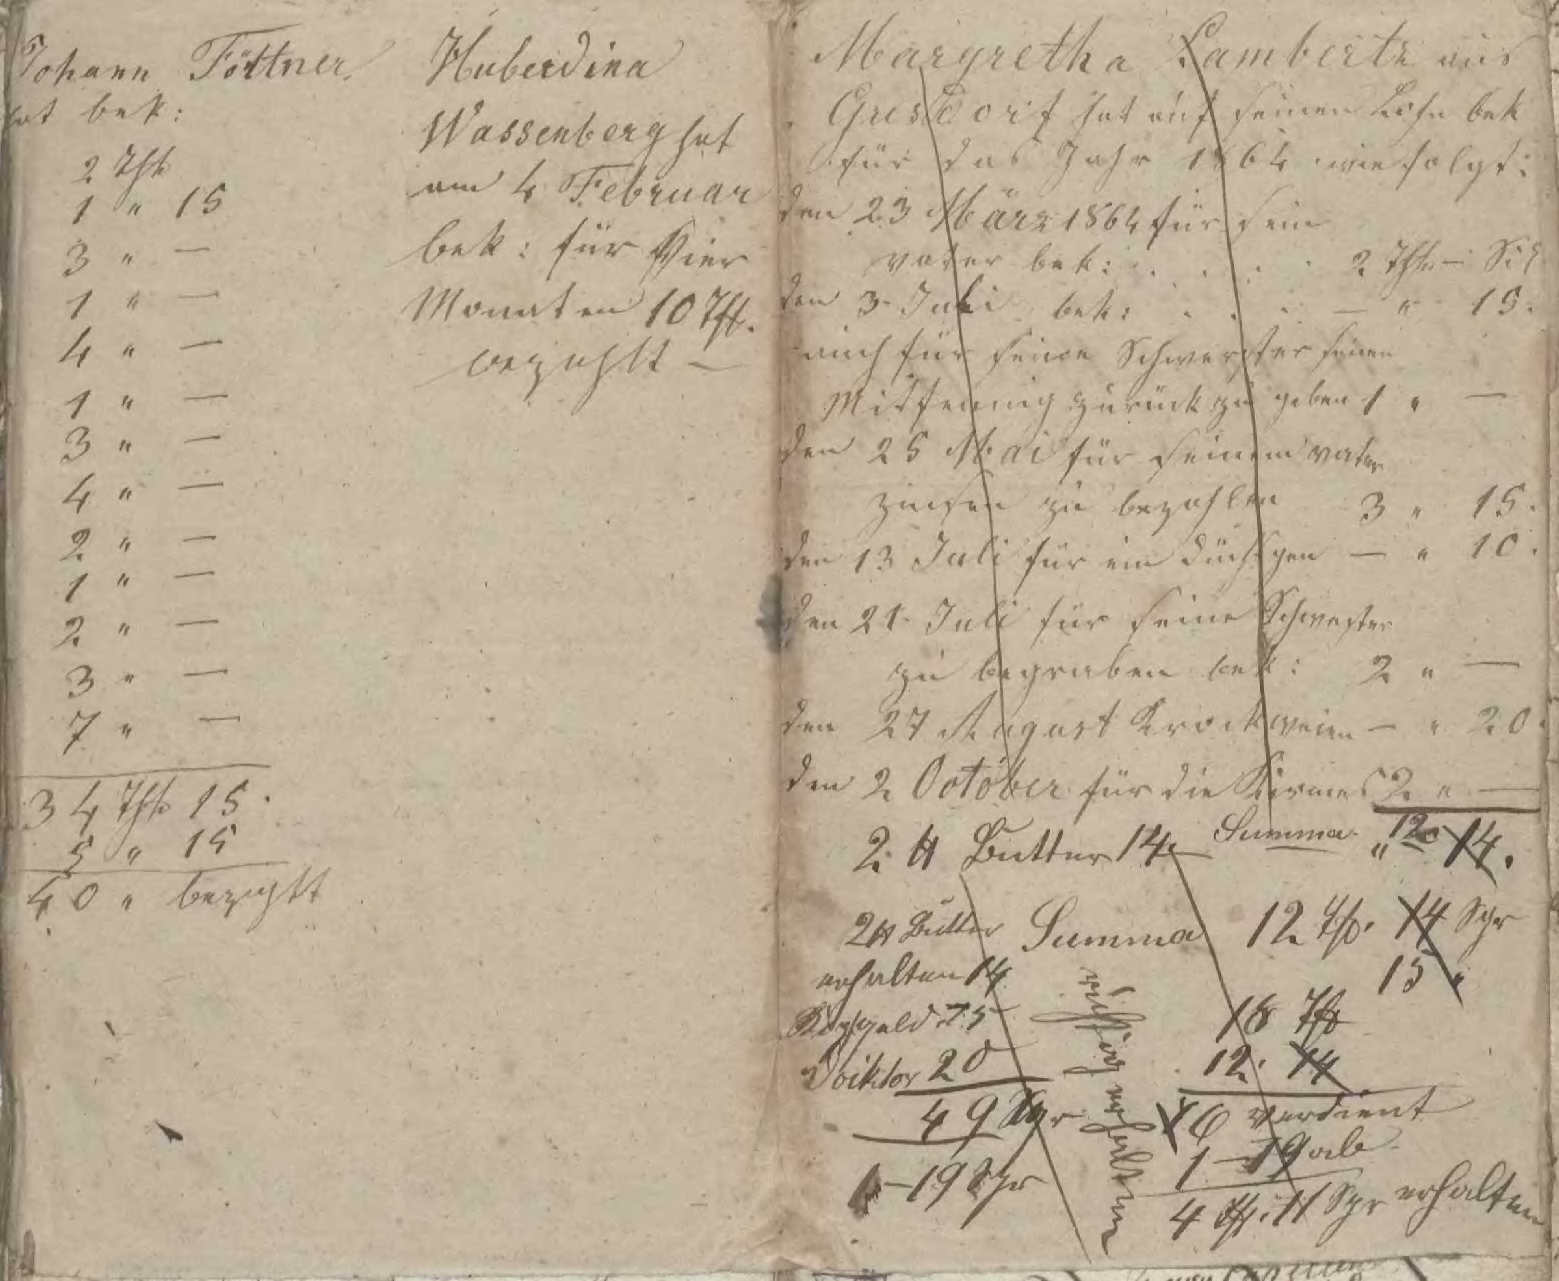 Johann Föttner.
hat bek:
2 Thlr
1 " 15
3 " —
1 " —
4 " —
1 " —
3 " —
4 " —
2 " —
1 " —
2 " —
3 " —
7 " —
34 Thlr 15.
5 " 15
40 " bezahlt
Huberdina
Wassenberg hat
am 4 Februar
bek: für Vier
Monaten 10 Thlr.
bezahlt —
Margretha Lambertz aus
Gresdorf hat auf seinen Lohn bek
für das Jahr 1864 wie folgt:
den 23 März 1864 für sein
vater bek: . . . . 2 Thlr — Sil
den 3 Juli bek: . . . — " 15.
auch für seine Schwerster seinen
zurück zu geben 1 " —
den 25 Mai für seinem vater
zinsen zu bezahlen 3 " 15.
den 13 Juli für ein düchsgen — " 10.
den 21 Juli für seine Schwester
zu begraben bek: 2 " —
den 27 August — " 20.
den 2 Ootober für die Kirmes 2 " —
2 ℔ Butter 14. Summa " 12 — 14.
2 ℔ Butter Summa 12 Thlr. 14 Sgr
erhalten 14 15 "
Kopfgeld 15 18 Thlr
Doiktor 20 12. 14
49 Sgr 6 verdient
1 — 19 Sgr 1 — 19 ab
4 Thlr. 11 Sgr erhalten
richtig erhalten